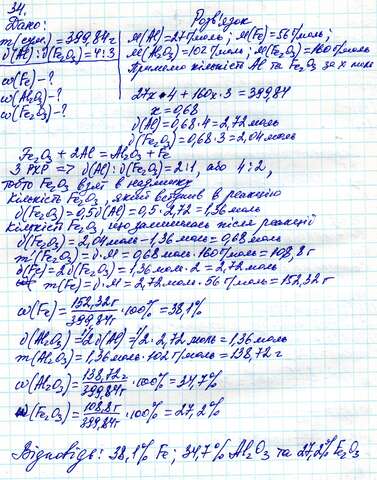 34.
Дано: Розв'язок
m(сум.) = 399,84г M(Al)=27г/моль; M(Fe)=56г/моль;
ν(Al):ν(Fe₂O₃)=4:3 M(Al₂O₃)=102г/моль; M(Fe₂O₃)=160г/моль
Приймемо кількість Al та Fe₂O₃ за x моль
ω(Fe)-?
ω(Al₂O₃)-? 27x·4+160x·3=399,84
ω(Fe₂O₃)-? x=0,68
ν(Al)=0,68·4=2,72моль
ν(Fe₂O₃)=0,68·3=2,04моль
Fe₂O₃+2Al=Al₂O₃+Fe
З РХР => ν(Al):ν(Fe₂O₃)=2:1, або 4:2,
тобто Fe₂O₃ взят в надлишку
Кількість Fe₂O₃, який вступив в реакцію
ν(Fe₂O₃)=0,5ν(Al)=0,5·2,72=1,36моль
Кількість Fe₂O₃, що залишилась після реакції
ν(Fe₂O₃)=2,04моль-1,36моль=0,68моль
m(Fe₂O₃)=ν·M=0,68моль·160г/моль=108,8г
ν(Fe)=2ν(Fe₂O₃)=1,36моль·2=2,72моль
m(Fe)=ν·M=2,72моль·56г/моль=152,32г
ω(Fe)=152,32г/399,84г·100%=38,1%
ν(Al₂O₃)=½ν(Al)=½·2,72моль=1,36моль
m(Al₂O₃)=1,36моль·102г/моль=138,72г
ω(Al₂O₃)=138,72г/399,84г·100%=34,7%
ω(Fe₂O₃)=108,8г/399,84г·100%=27,2%
Відповідь: 38,1% Fe; 34,7% Al₂O₃ та 27,2% Fe₂O₃